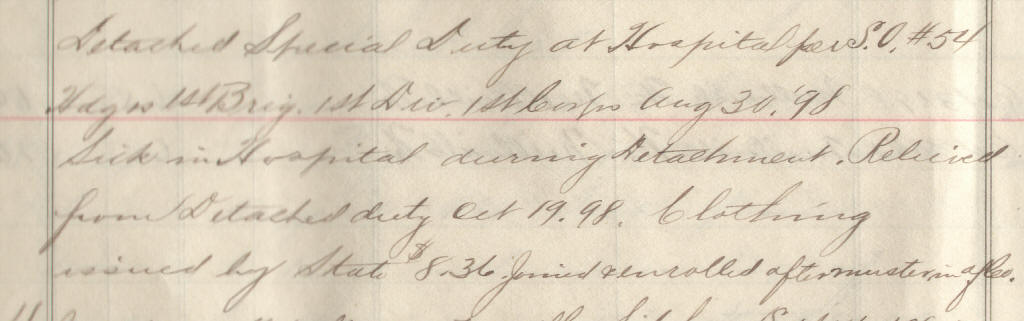 Detached Special Duty at Hospital per S.O. #54
Hdqrs 1st Brig. 1st Div. 1st Corps Aug 30, '98
Sick in Hospital during detachment. Relieved
from Detached duty Oct 19. 98. Clothing
issued by State $8.36 Joined & enrolled after muster in of Co.